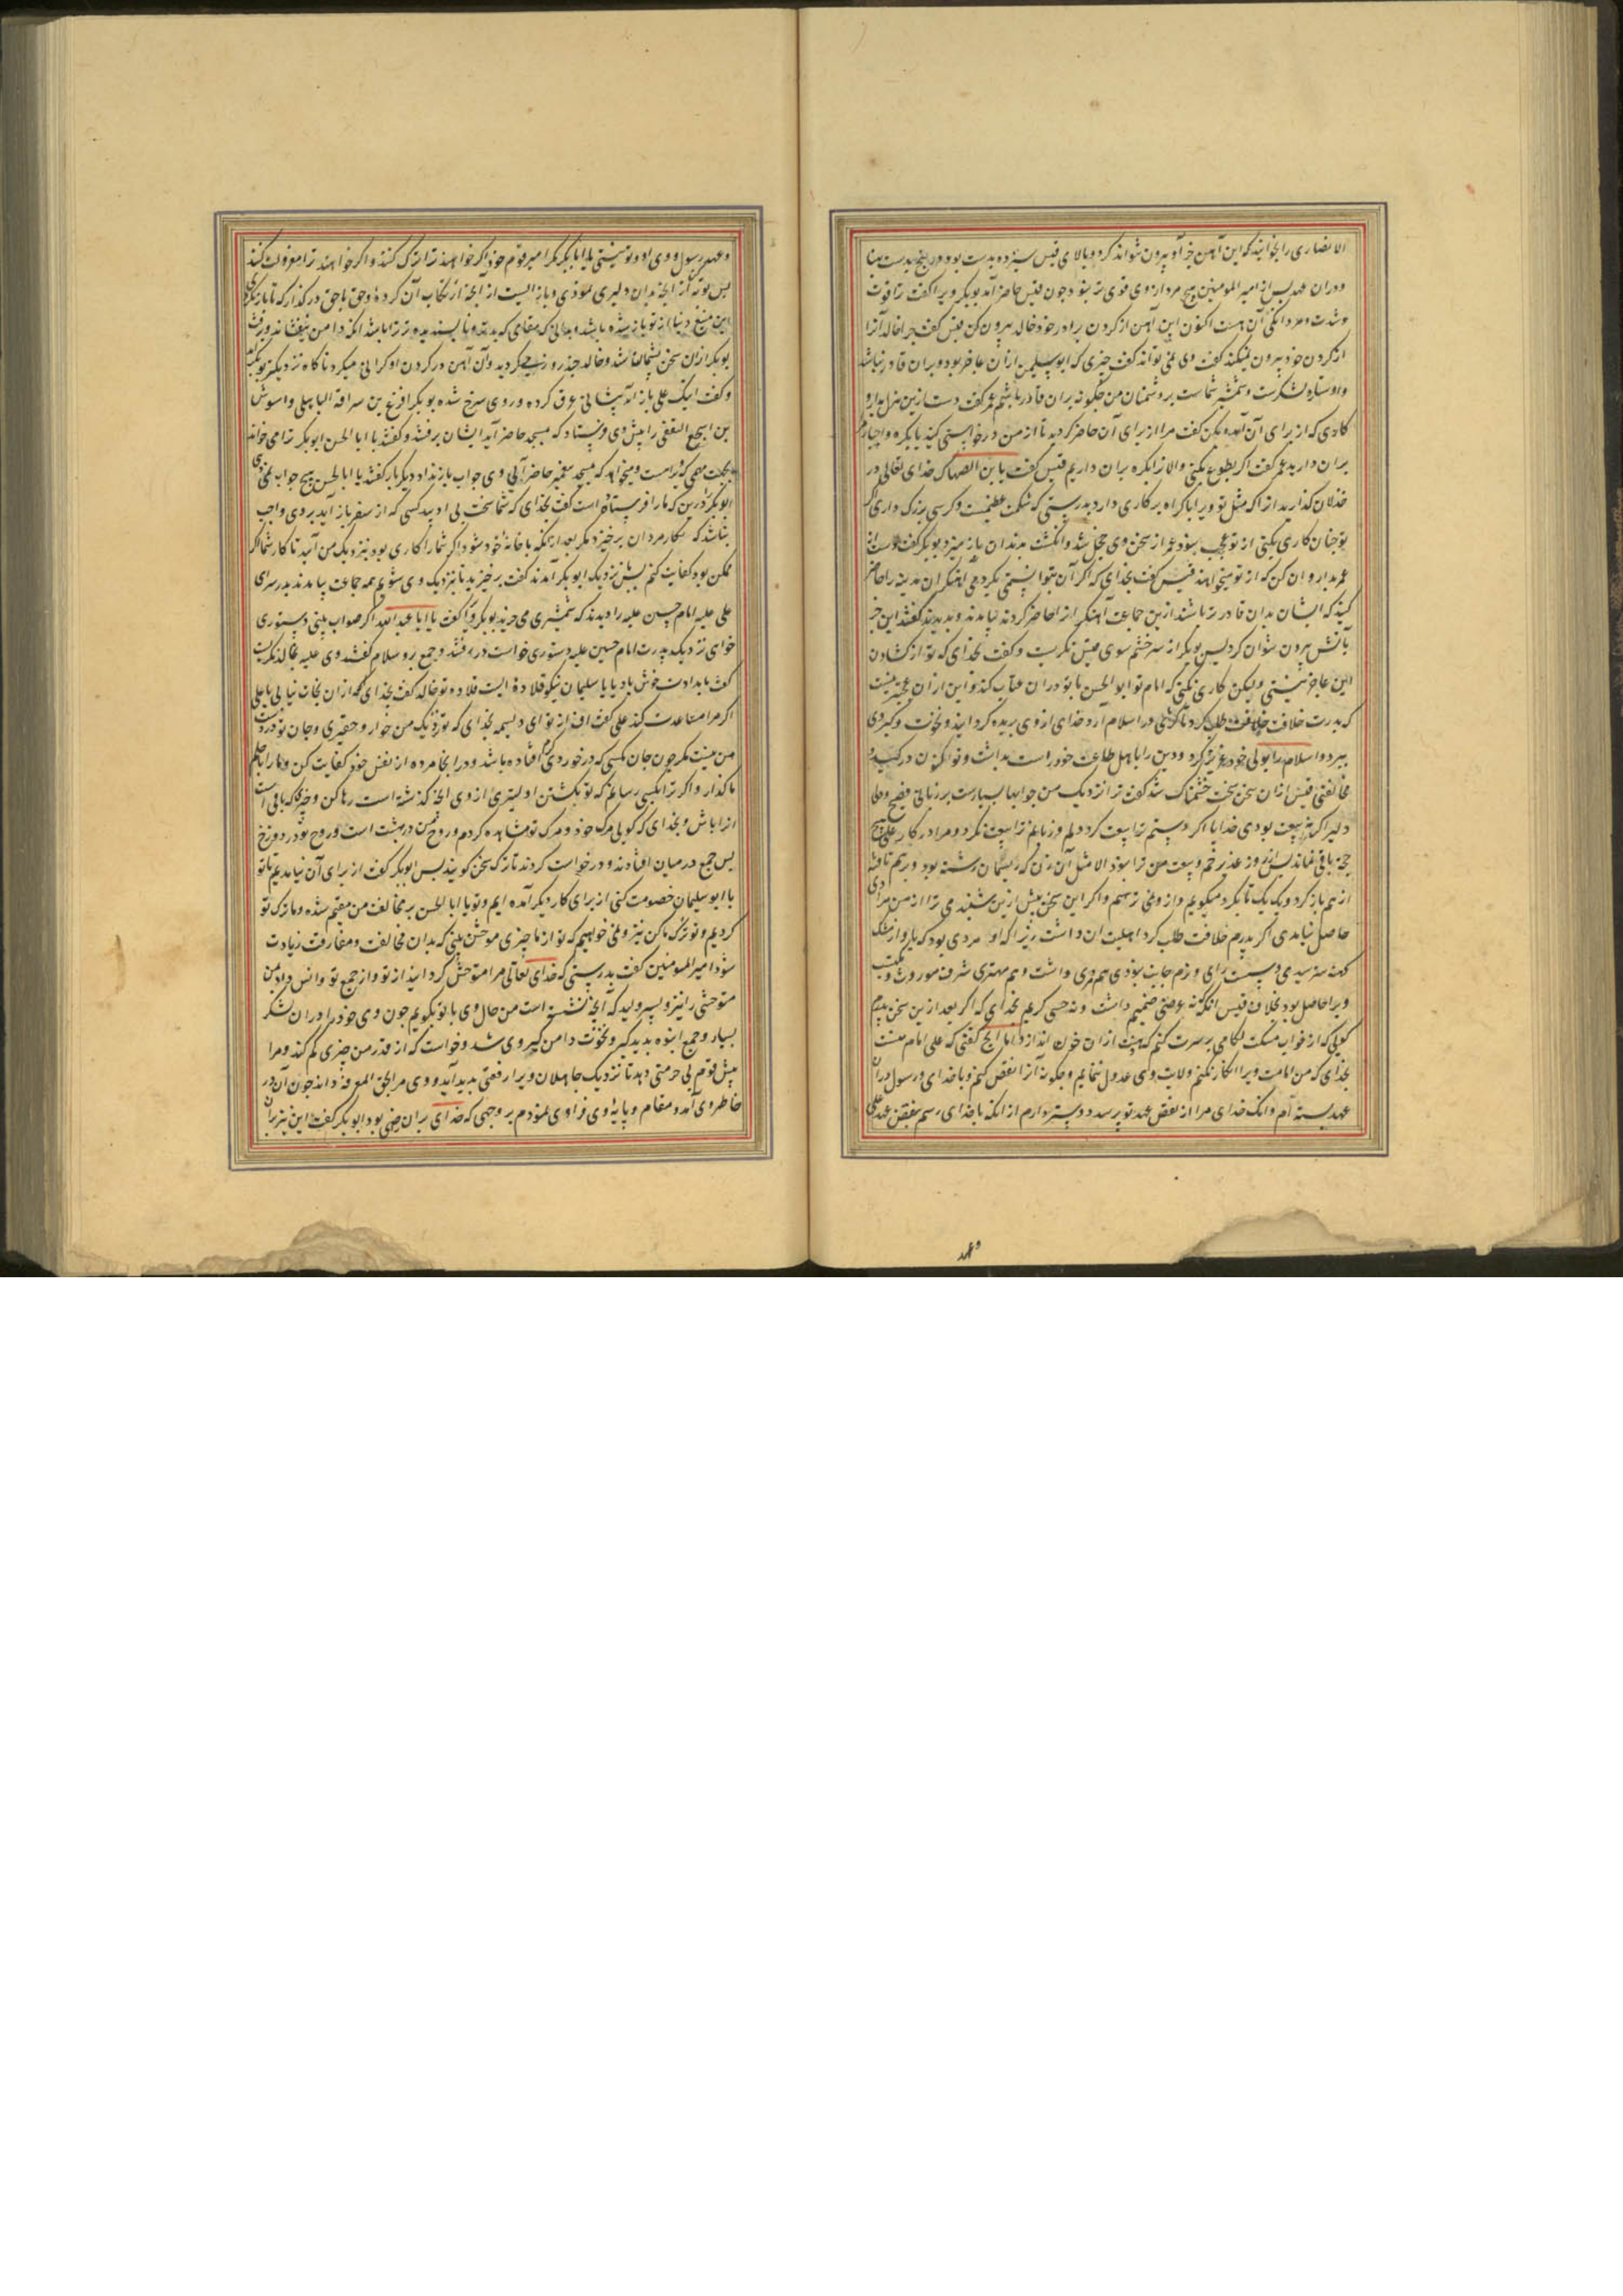 الانصاری را بخوانید که این آهن جز او بیرون نتواند کرد و بالای قیس سیزده بدست بود در پنج بدست پهنا
و در ان عهد پس از امیر المومنین هیچ مرد از وی قوی تر نبود چون قیس حاضر آمد بوبکر ویرا گفت ترا قوت
و شدت و مردانگی آن هست اکنون این آهن از کردن برادر خود خالد بیرون کن قیس گفت چرا خالد آنرا
از کردن خود بیرون نمیکند گفت وی نمی تواند گفت چیزی که ابو سلیمن از ان عاجز بود و بران قادر نباشد
و او ستاره لشکرست و شمشیر شماست بر دشمنان من چگونه بران قادر باشم عمر گفت دست ازین هزل بدار و
کاری که از برای آن آمده بکن گفت مرا از برای آن حاضر کردید تا از من درخواستی کنید یا بکره و اجبارم
بران دارید عمر گفت اگر بطوع نکنی والا ترا بکره بران داریم قیس گفت یا بن الصهاک خدای تعالی در
خذلان کذارید انرا که مثل تو ویرا باکراه بر کاری دارد بدرستی که شکمت عظیمست و کرسی بزرک داری اگر
تو چنان کاری بکنی از تو عجب نبود عمر از سخن وی خجل شد و انگشت بدندان باز میزد بوبکر گفت دست از
عمر بدار و ان کن که از تو میخواهند قیس گفت بخدای که اگر آن بتوانستمی نکردمی اهنگران مدینه را حاضر
کنید که ایشان بدان قادر تر باشند ازین جماعت آهنگر انرا حاضر کردند بیامدند و بدیدند گفتند این جز
بآتش بیرون نتوان کرد پس بوبکر از سر خشم سوی قیس نگریست و گفت بخدای که تو از کشادن
این عاجز نیستی ولیکن کاری نکنی که امام تو ابو الحسن با تو در ان عتاب کند و این از ان عجبتر نیست
که پدرت خلافت طلب کرد تا کژی در اسلام آرد خدای از وی بریده کردانید و نخوت و کبر وی
ببرد و اسلام را بولی خود عزیز کرد و دین را باهل طاعت خود راست بداشت و تو اکنون در کید و
مخالفتی قیس ازان سخن سخت خشمناک شد گفت ترا نزدیک من جوابها بسیارست بر زبانی فصیح و دلی
دلیر اگر نه بیعت بودی خدایا اگر دستم ترا بیعت کرد دلم و زبانم ترا بیعت نکرد و مرا در کار علی هیچ
حجه باقی نماند پس از روز غدیر خم و بیعت من ترا نبود الا مثل آن زن که ریسمان رشته بود و برهم تافته
از هم باز کرد و یک یک تا بکرد میکویم و از و نمی ترسم و اگر این سخن پیش ازین بشنیدمی ترا از من مرادی
حاصل نیامدی اگر پدرم خلافت طلب کرد اهلیت ان داشت زیرا که او مردی بود که
ویرا حاصل بود بخلاف قیس انکه نه عوضی ضمیم داشت و نه حسبی کریم بخدای که اگر بعد ازین سخن پدرم
کویی که از فواب مسکت لکامی بر سرت کنم که پست ازان خون اندازد اما انچ گفتی که علی امام منست
بخدای که من امامت ویرا انکار نکنم و از ولایت وی عدول ننمایم و چگونه آنرا نقض کنم و با خدای و رسول دران
عهد بسته ام و انک خدای مرا از نقض عهد تو پرسد دوستر دارم از انکه با خدای رسم بنقض عهد علی
و عهد رسول و وی و تو نیستی یا ابا بکر مگر امیر قوم خود اگر خواهند ترا ترک کنند و اگر خواهند ترا معزول کنند
پس توبه کن از انچه بدان دلیری نمودی و باز ایست از انچه ارتکاب آن کردهٔ و حق با حق در کذار که تا باز نکردی
این منبع دنیا از تو باز
بوبکر ازان سخن پشیمان شد و خالد چند روز می کردید و آن آهن در کردن او گرانی میکرد تا ناکاه نزدیک بوبکر آمد
و گفت اینک علی باز آمد پیشانی عرق کرده و روی سرخ شده بوبکر اقرع بن سراقه الباهلی و اسوش
بن اشجع الثقفی را پیش وی فرستاد که بمسجد حاضر آید ایشان برفتند و گفتند یا ابا الحسن ابوبکر ترا می خواند
بجهت مهمی که ویرا هست و میخواهد که بمسجد پیغمبر حاضر آئی وی جواب باز نداد دیگر بار گفتند یا ابا الحسن هیچ جواب نمی دهی
ابوبکر را درین که ما را فرستاده است گفت بخدای که شما سخت بی ادبید کسی که از سفر باز آید بر وی واجب
نباشد که بکار مردان برخیزد مگر بعد از انکه با خانهٔ خود شود اگر شما را کاری بود نزدیک من آیید تا کار شما اگر
ممکن بود کفایت کنم پس نزدیک ابوبکر آمدند گفت برخیزید تا نزدیک وی شویم همه جماعت بیامدند بدر سرای
علی علیه امام حسین علیه را دیدند که شمشیری می خرید بوبکر ویرا گفت یا ابا عبدالله اگر صواب بینی دستوری
خواهی نزدیک پدرت امام حسین علیه دستوری خواست در رفتند و جمع برو سلام گفتند وی علیه بخالد نگریست
گفت بامدادت خوش باد یا با سلیمان نیکو قلادهٔ ایست قلاده تو خالد گفت بخدای که از ان نجات نیابی یا علی
اگر مرا مساعدت کند علی گفت اف از تو ای دلیمه بخدای که تو نزدیک من خوار و حقیری و جان تو در دست
من نیست مگر چون جان مگسی که در خوردی گرم افتاده باشد و در انجا مرده از نفس خود کفایت کن و ما را با حلم
ما گذار و اگر ترا بکسی رسانم که تو بکشتن اولیتری از وی انچه گذشته است رها کن و چیزی که باقی است
از اباش و بخدای که کوئی مرک خود و مرک تو مشاهده کردم و روح من در بهشت است و روح تو در دوزخ
پس جمع در میان افتادند و درخواست کردند تا ترک سخن کویند پس ابوبکر گفت از برای آن نیامدیم تا تو
با ابو سلیمان خصومت کنی از برای کار دیگر آمده ایم و تو یا ابا الحسن بر مخالفت من مقیم شده و ما ترک تو
کردیم و تو ترک ما کن نیز و نمی خواهیم که تو از ما چیزی موحش بینی که بدان مخالفت و مفارقت زیادت
شود امیر المومنین گفت بدرستی که خدای تعالی مرا متوحش کردانید از تو و از جمع تو و انس داد بمن
متوحشی را نیز و پسر ولید که آنچه گذشته است من حال وی با تو بکویم چون وی خود را در ان لشکر
بسیار و جمع انبوه بدید کبر و نخوت دامن کیر وی شد و خواست که از قدر من چیزی کم کند و مرا
پیش قوم بی حرمتی دهد تا نزدیک جاهلان ویرا رفعتی بدید آید و وی مرا بحق المعرفه داند چون آن در
خاطر وی آمد و مقام و پایهٔ وی فرا وی نمودم بر وجهی که خدای بران راضی بود ابوبکر گفت این نیز بران